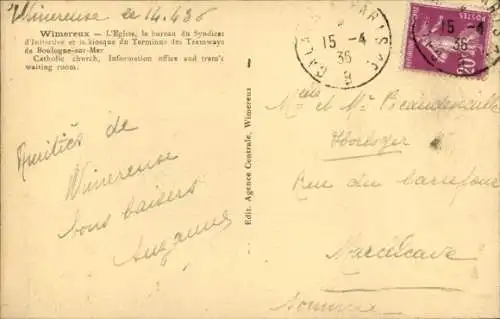 Wimereuse le 14.4.36
Wimereux – L'Eglise, le bureau du Syndicat
d'Initiative et le kiosque du Terminus des Tramways
de Boulogne-sur-Mer
Catholic church, Information office and tram's
waiting room.
Amitiés de
Wimereuse
bons baisers
Suzanne
Edit. Agence Centrale, Wimereux
CALAIS PARIS
15 - 4
36
15 - 4
36
20
Mme et Mr
Horloger
Rue du carrefour
Marcelcave
Somme